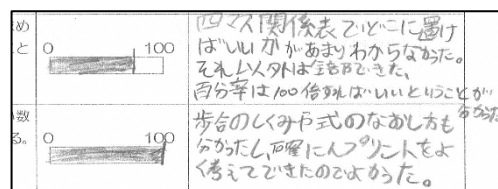 め
と
0 100
四マス関係表でどこに置け
ばいいかがあまりわからなかった。
それ以外は全部できた。
百分率は100倍すればいいということが
分かった
数
る。
0 100
歩合のしくみや式のなおし方も
分かったし、確にんプリントをよ
く考えてできたのでよかった。